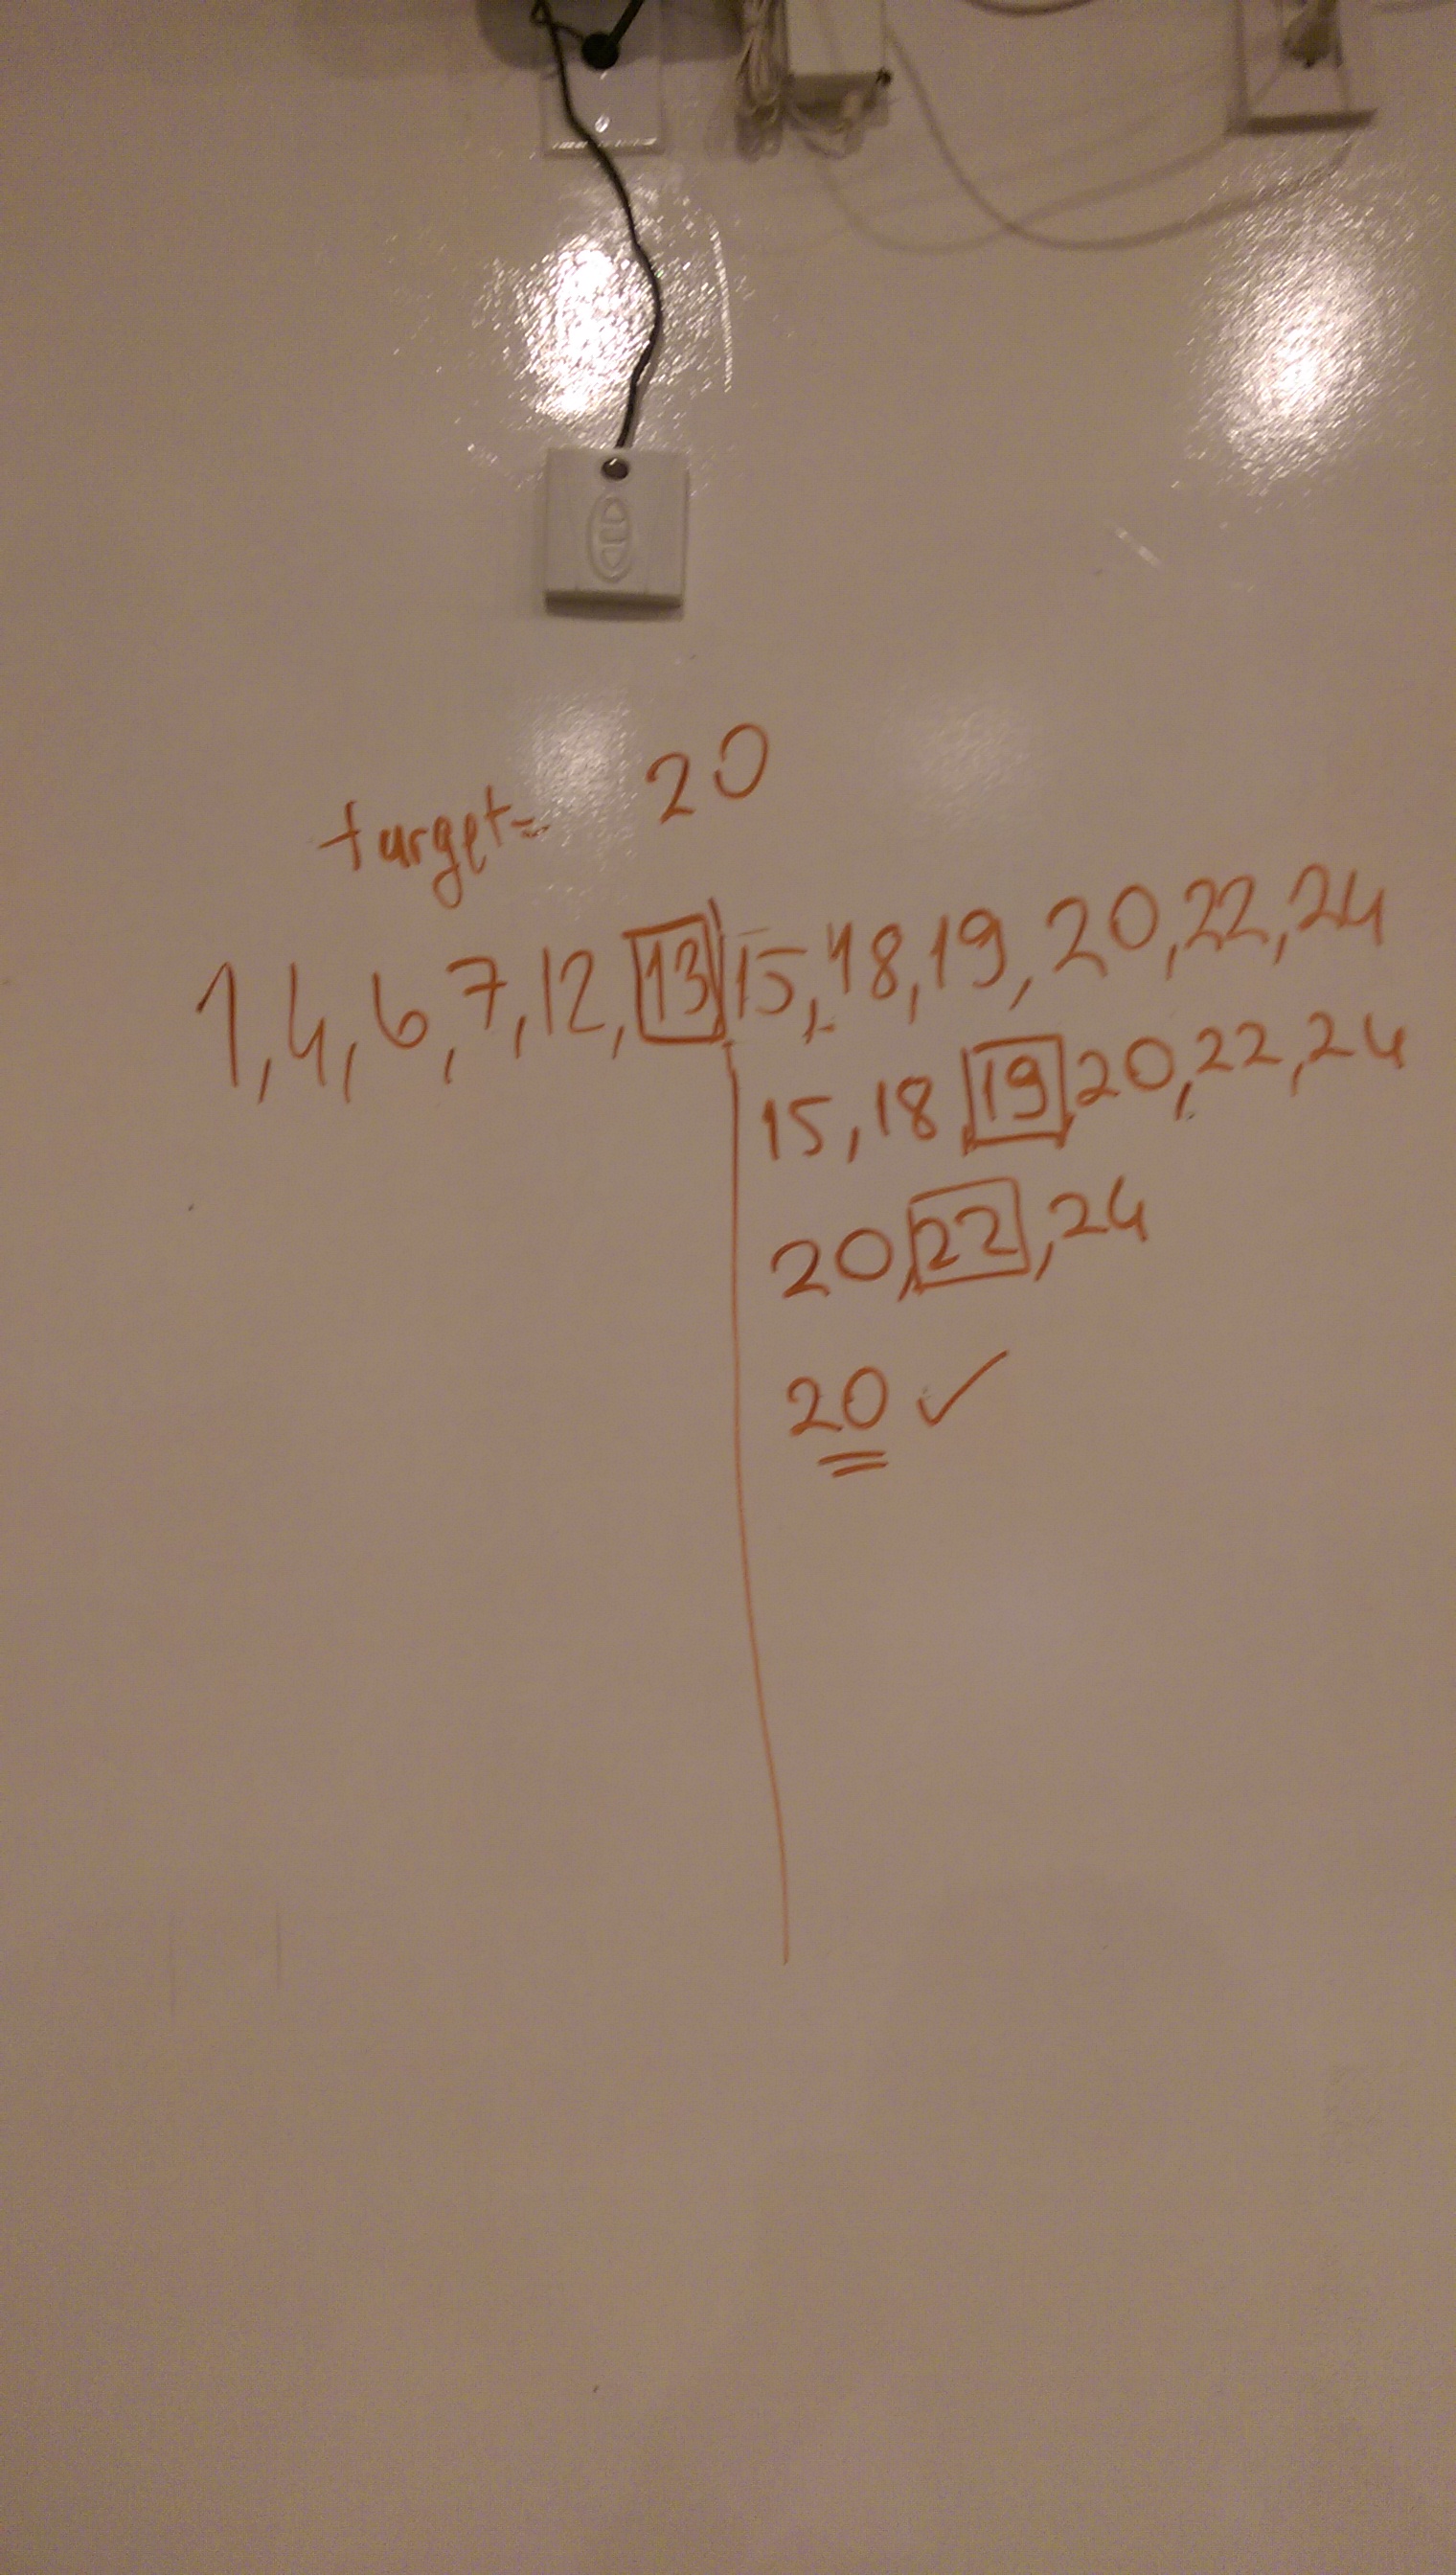 target= 20
1,4,6,7,12,13 15,18,19,20,22,24
15,18 19 20,22,24
20,22,24
20 ✓